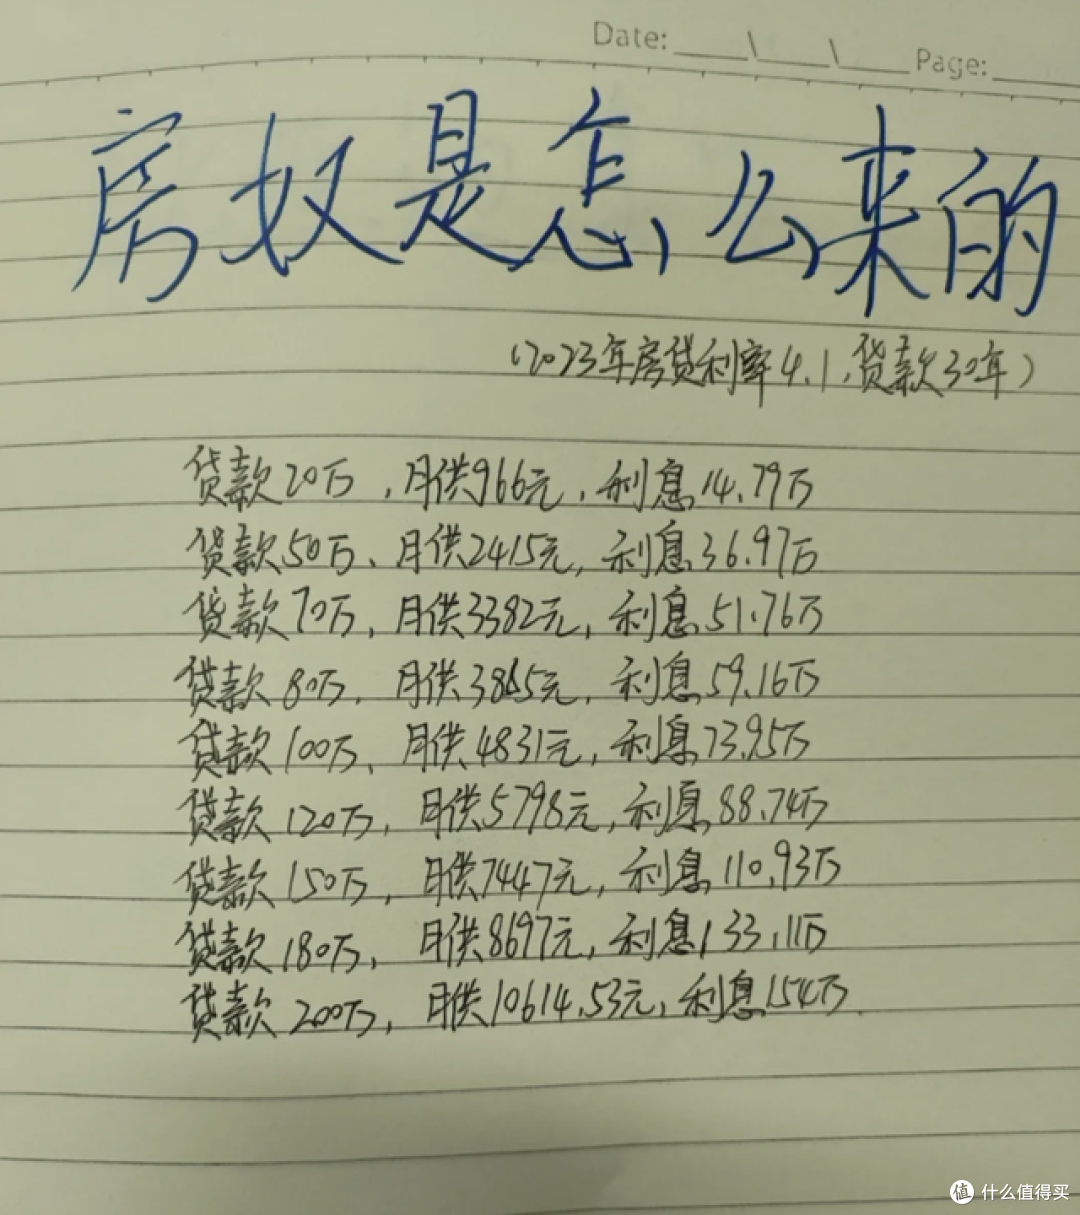 Date: ____\____\____ Page: ____
房奴是怎么来的
(2023年房贷利率4.1,贷款30年)
贷款20万,月供966元,利息14.79万
贷款50万、月供2415元,利息36.97万
贷款70万,月供3382元,利息51.76万
贷款80万,月供3865元,利息59.16万
贷款100万、月供4831元,利息73.95万
贷款120万,月供5798元,利息88.74万
贷款150万,月供7447元,利息110.93万
贷款180万,月供8697元,利息133.11万
贷款200万,月供10614.53元,利息154万.
值 什么值得买